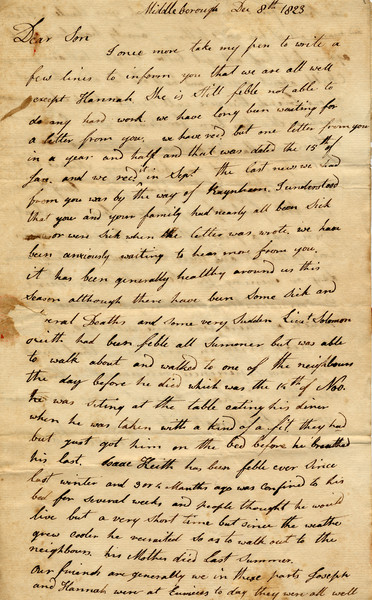 Middleborough Dec 8th 1823
Dear Son
I once more take my pen to write a
few lines to inform you that we are all well
except Hannah She is still feble not able to
do any hard work. we have long bin waiting for
a letter from you. we have recd but one letter from you
in a year and half and that was dated the 15th of
Jan. and we recd it in Sept the last news we had
from you was by the way of Raynham. I understood
that you and your family had nearly all been Sick
or were Sick when the letter was wrote. we have
been anxiously waiting to hear more from you.
it has been generally healthy around us this
Season although there have been Some Sick and
Several Deaths and some very Sudden Lieut Solomon
Keith had been feble all Summer but was able
to walk about and walked to one of the neighbours
the day before he died which was the 14th of Nov.
he was siting at the table eating his diner
when he was taken with a kind of a fit they had
but just got him on the bed before he breathed
his last. Isaac Keith has been feble ever Since
last winter and 3 or 4 Months ago was confined to his
bed for Several weeks and people thought he would
live but a very Short time but Since the weather
grew cooler he recruited So as to walk out to the
neighbours. his Mother died last Summer.
Our friends are generally we in these parts Joseph
and Hannah were at to day they were all well